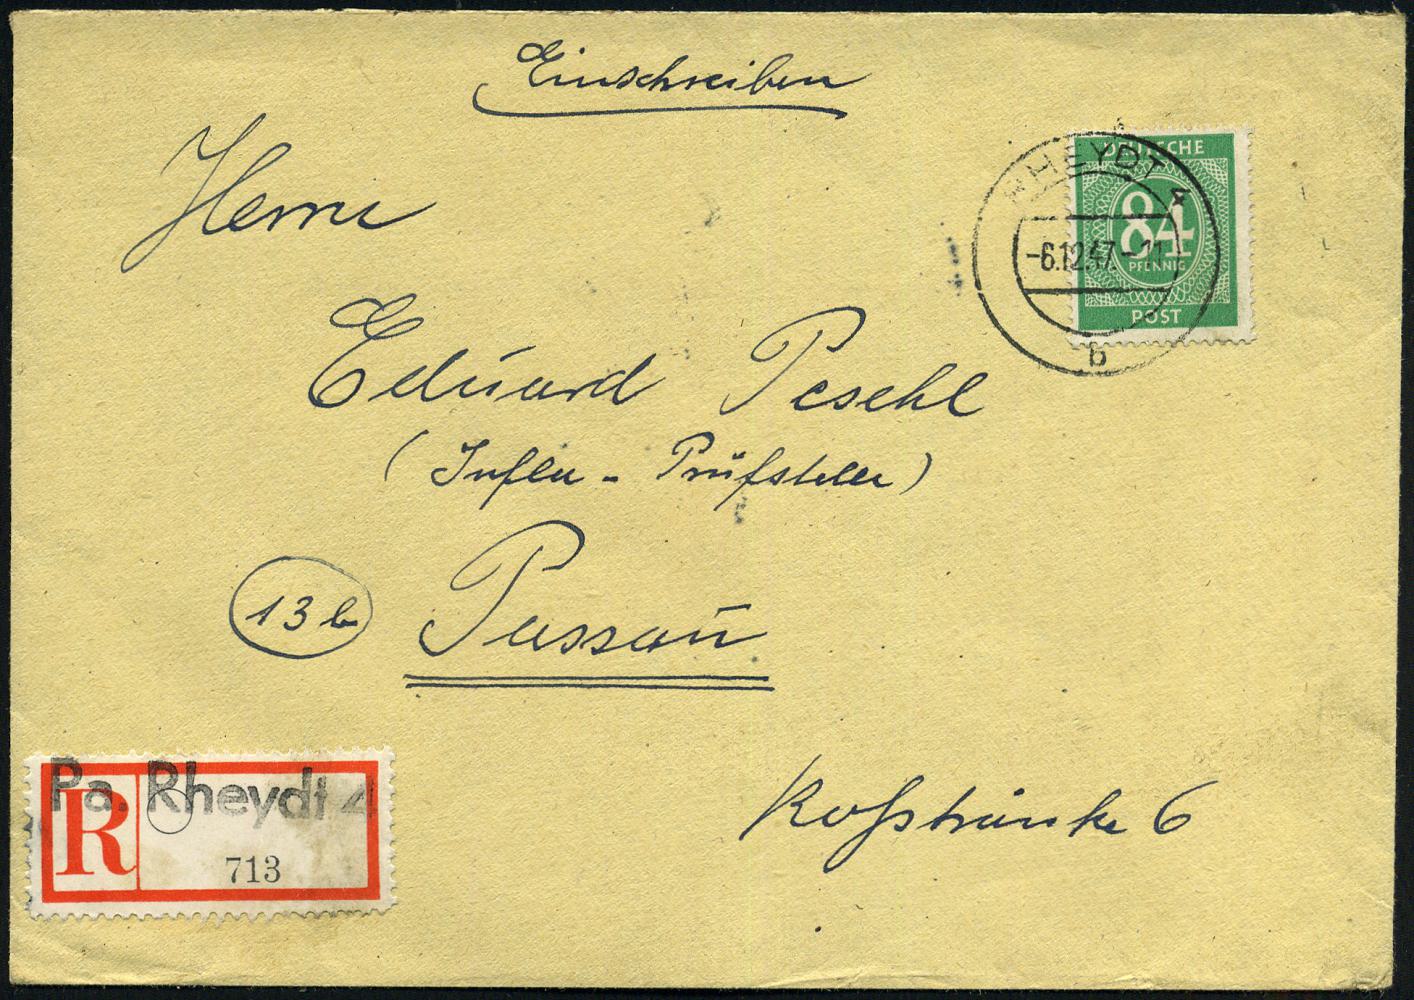 Einschreiben
Herrn
DEUTSCHE
84
PFENNIG
POST
RHEYDT 4
-6.12.47.-11
b
Eduard Peschl
(Infla - Prüfstelle)
13b Passau
Roßtränke 6
Pa. Rheydt 4
R
713